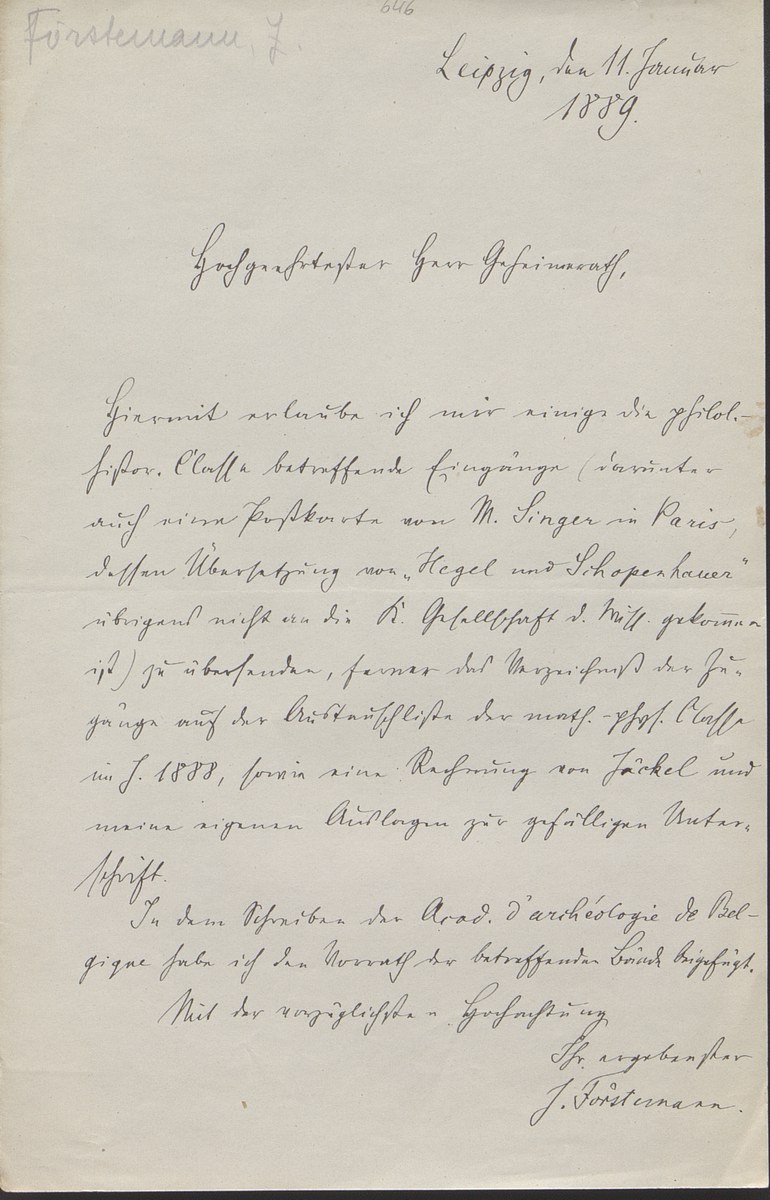 646
Förstemann, J.
Leipzig, den 11. Januar
1889.
Hochgeehrtester Herr Geheimrath,
Hiermit erlaube ich mir einige die philol.-
histor. Classe betreffende Eingänge (darunter
auch eine Postkarte von M. Singer in Paris,
dessen Übersetzung von „Hegel und Schopenhauer"
übrigens nicht an die K. Gesellschaft d. Wiss. gekommen
ist) zu übersenden, ferner das Verzeichniß der Zu-
gänge auf der Austauschliste der math.-phys. Classe
im J. 1888, sowie eine Rechnung von Jäckel und
meine eigenen Auslagen zur gefälligen Unter-
schrift.
In dem Schreiben der Acad. d'archéologie de Bel-
gique habe ich den Vorrath der betreffenden Bände beigefügt.
Mit der vorzüglichsten Hochachtung
Ihr ergebenster
J. Förstemann.